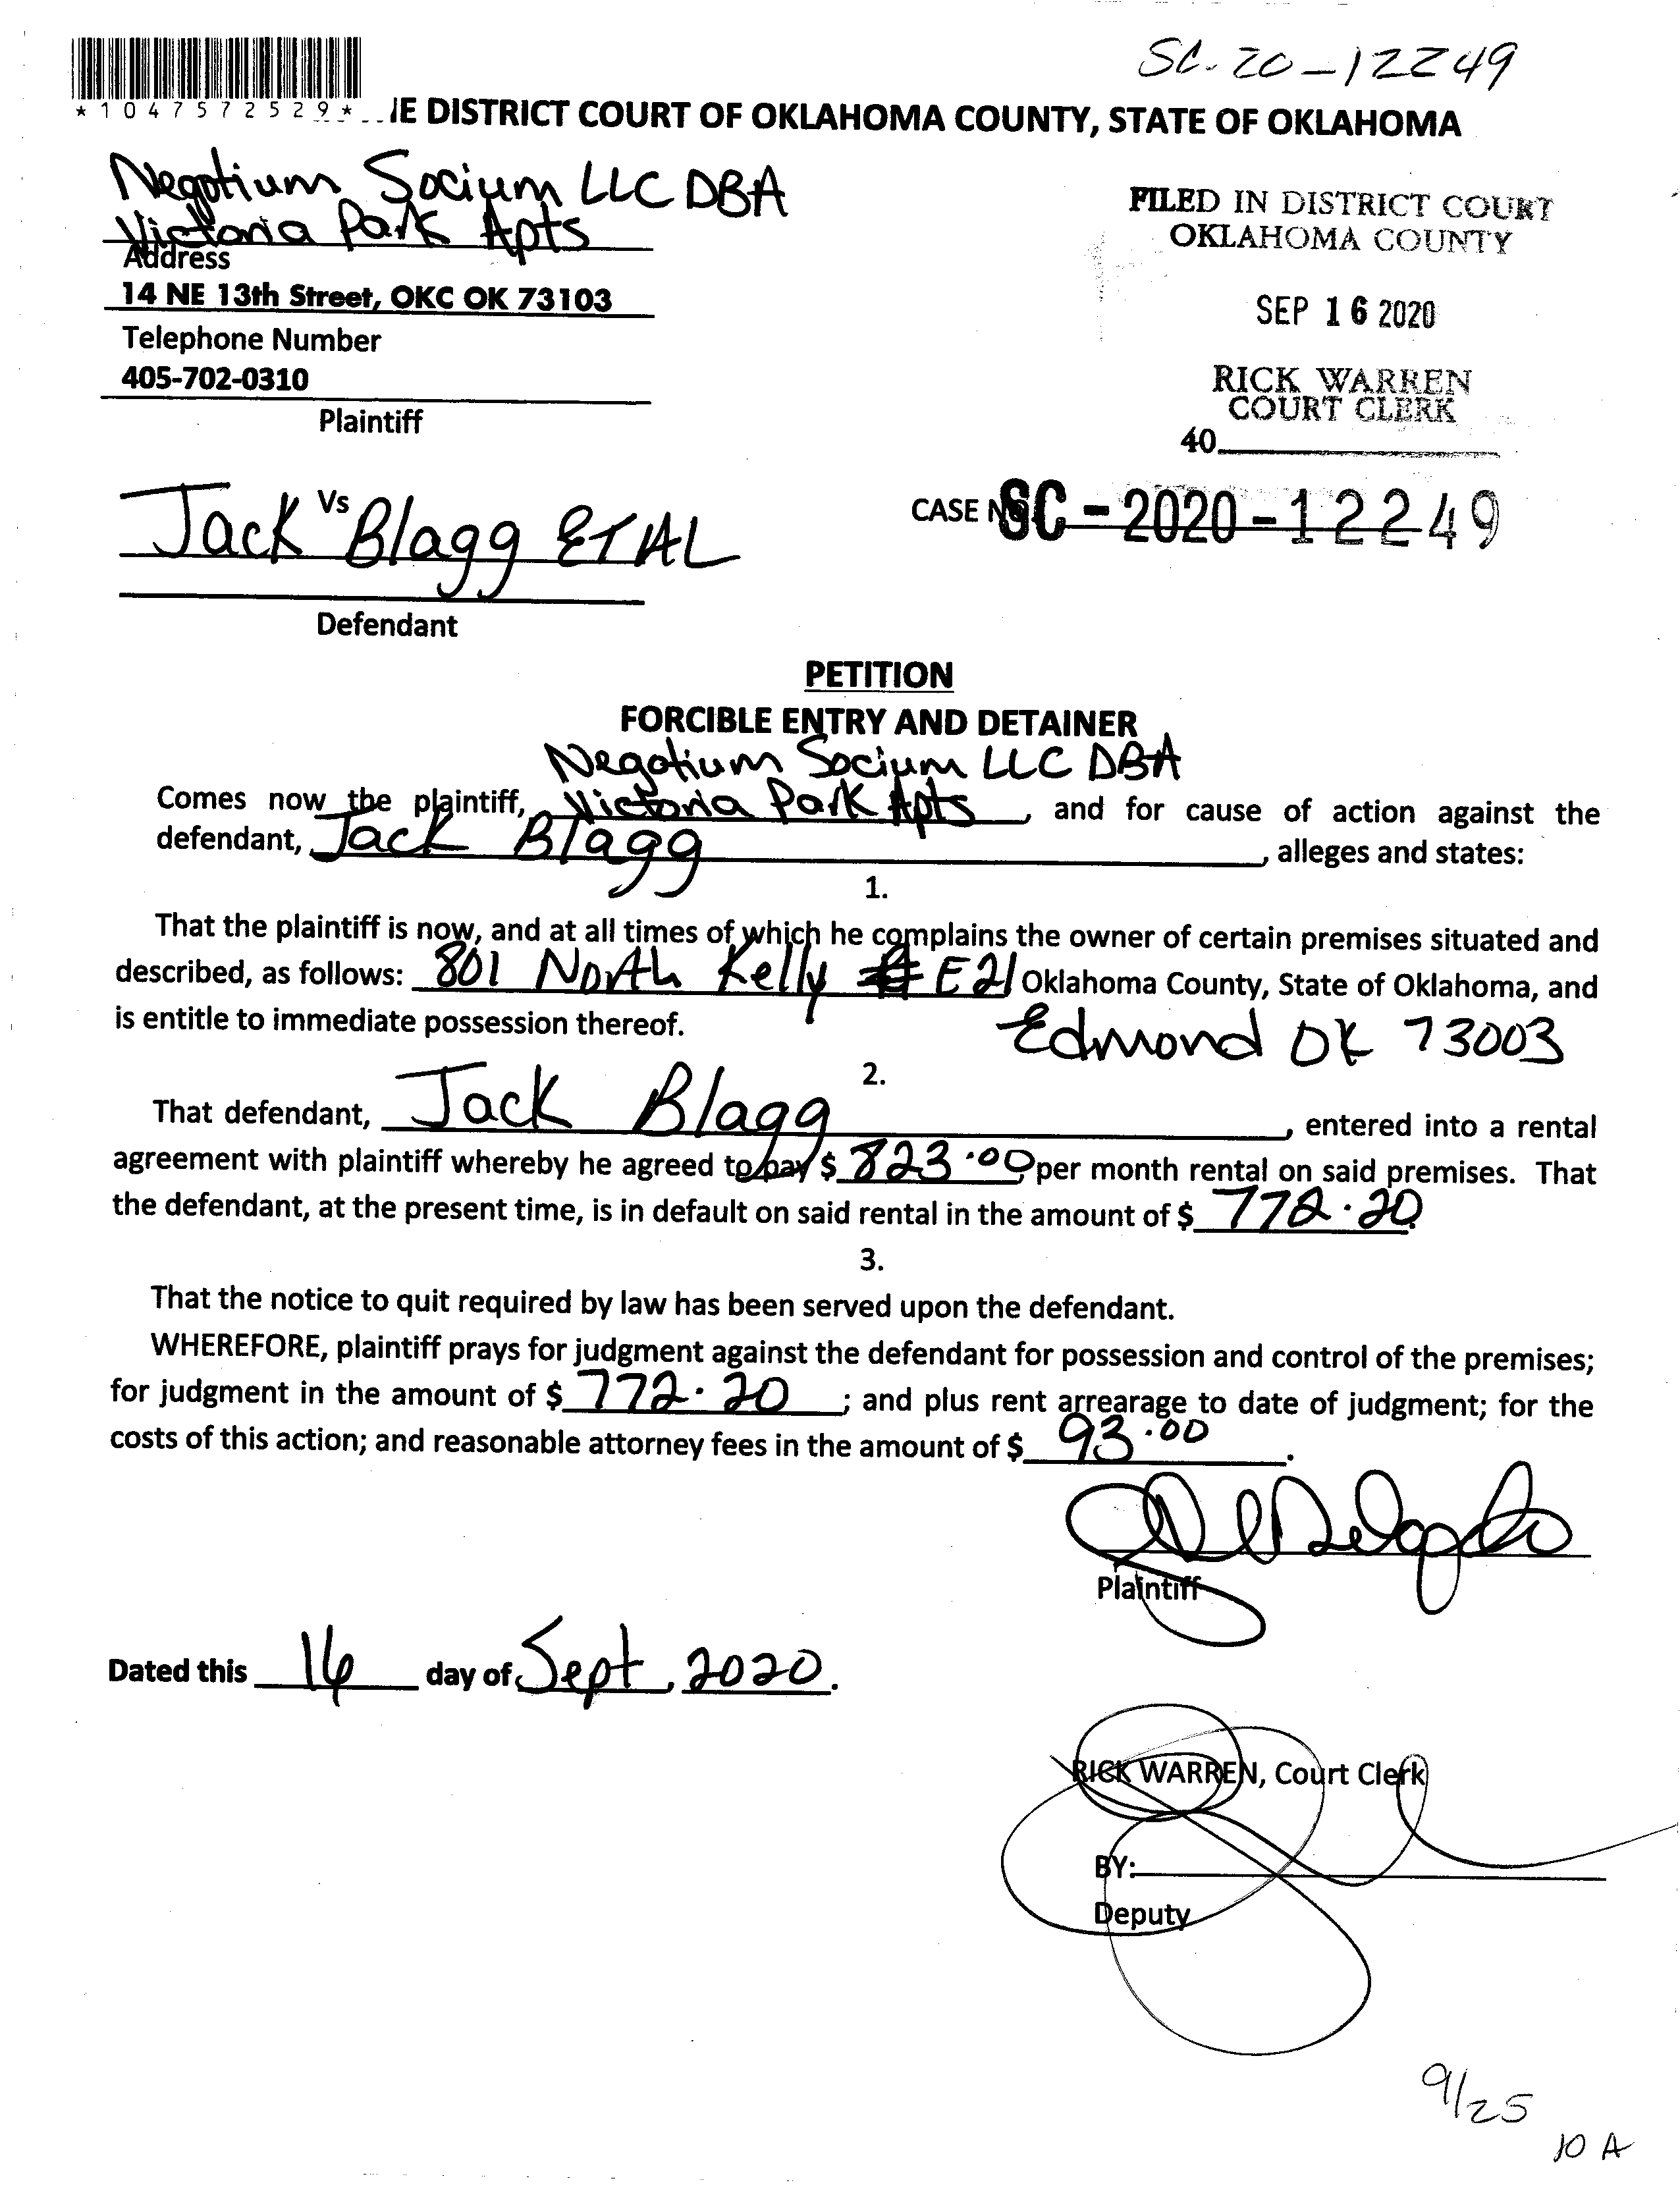 SC-20-12249
*1047572529*
IE DISTRICT COURT OF OKLAHOMA COUNTY, STATE OF OKLAHOMA
Negotium Socium LLC DBA
Victoria Park Apts
Address
14 NE 13th Street, OKC OK 73103
Telephone Number
405-702-0310
Plaintiff
FILED IN DISTRICT COURT
OKLAHOMA COUNTY
SEP 16 2020
RICK WARREN
COURT CLERK
40
Vs
Jack Blagg ET AL
Defendant
CASE NO. SC-2020-12249
PETITION
FORCIBLE ENTRY AND DETAINER
Negotium Socium LLC DBA
Comes now the plaintiff, Victoria Park Apts, and for cause of action against the
defendant, Jack Blagg, alleges and states:
1.
That the plaintiff is now, and at all times of which he complains the owner of certain premises situated and
described, as follows: 801 North Kelly # E21 Oklahoma County, State of Oklahoma, and
is entitle to immediate possession thereof. Edmond OK 73003
2.
That defendant, Jack Blagg, entered into a rental
agreement with plaintiff whereby he agreed to pay $ 823.00 per month rental on said premises. That
the defendant, at the present time, is in default on said rental in the amount of $ 772.20.
3.
That the notice to quit required by law has been served upon the defendant.
WHEREFORE, plaintiff prays for judgment against the defendant for possession and control of the premises;
for judgment in the amount of $ 772.20; and plus rent arrearage to date of judgment; for the
costs of this action; and reasonable attorney fees in the amount of $ 93.00.
Delgado
Plaintiff
Dated this 16 day of Sept, 2020.
RICK WARREN, Court Clerk
BY:
Deputy
9/25
10 A